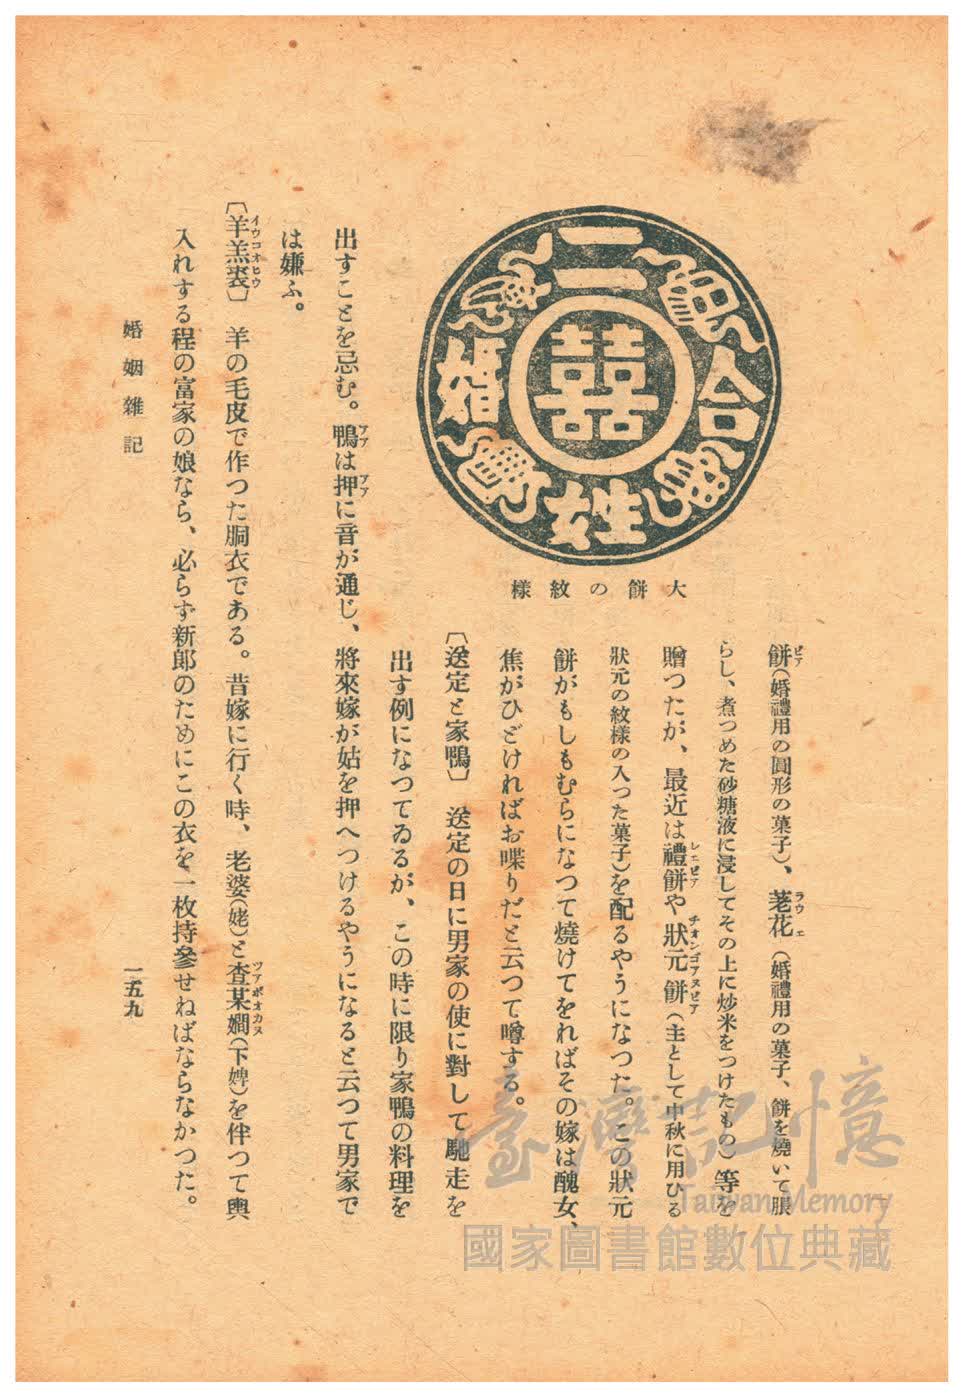 二姓合婚
囍
大餠の紋樣
餠(婚禮用の圓形の菓子)、荖花(婚禮用の菓子、餠を燒いて脹
ピア
ラウ エ
らし、煮つめた砂糖液に浸してその上に炒米をつけたもの)等を
贈つたが、最近は禮餠や狀元餠(主として中秋に用ひる
レエピア
チオンゴアヌピア
狀元の紋樣の入つた菓子)を配るやうになつた。この狀元
餠がもしもむらになつて燒けてをればその嫁は醜女、
焦がひどければお喋りだと云つて噂する。
〔送定と家鴨〕 送定の日に男家の使に對して馳走を
出す例になつてゐるが、この時に限り家鴨の料理を
出すことを忌む。鴨は押に音が通じ、將來嫁が姑を押へつけるやうになると云つて男家で
アア
アア
は嫌ふ。
〔羊羔裘〕 羊の毛皮で作つた胴衣である。昔嫁に行く時、老婆(姥)と査某嫺(下婢)を伴つて輿
イウコオヒウ
ツアボオカヌ
入れする程の富家の娘なら、必らず新郞のためにこの衣を一枚持參せねばならなかつた。
婚姻雜記
一五九
臺灣記憶
Taiwan Memory
國家圖書館數位典藏